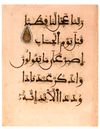 ربنا عجل لنا قطنا
قبل يوم الحساب
اصبر على ما يقولون
واذكر عبدنا دا
ود ذا الأيد إنه